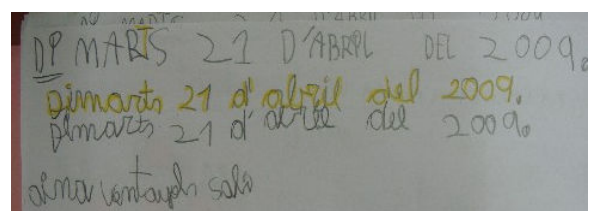 DIMARTS 21 D'ABRIL DEL 2009.
Dimarts 21 d'abril del 2009.
Dimarts 21 d'abril del 2009.
aina